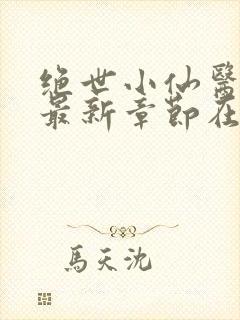 绝世小仙醫
最新章節在
馬天沈